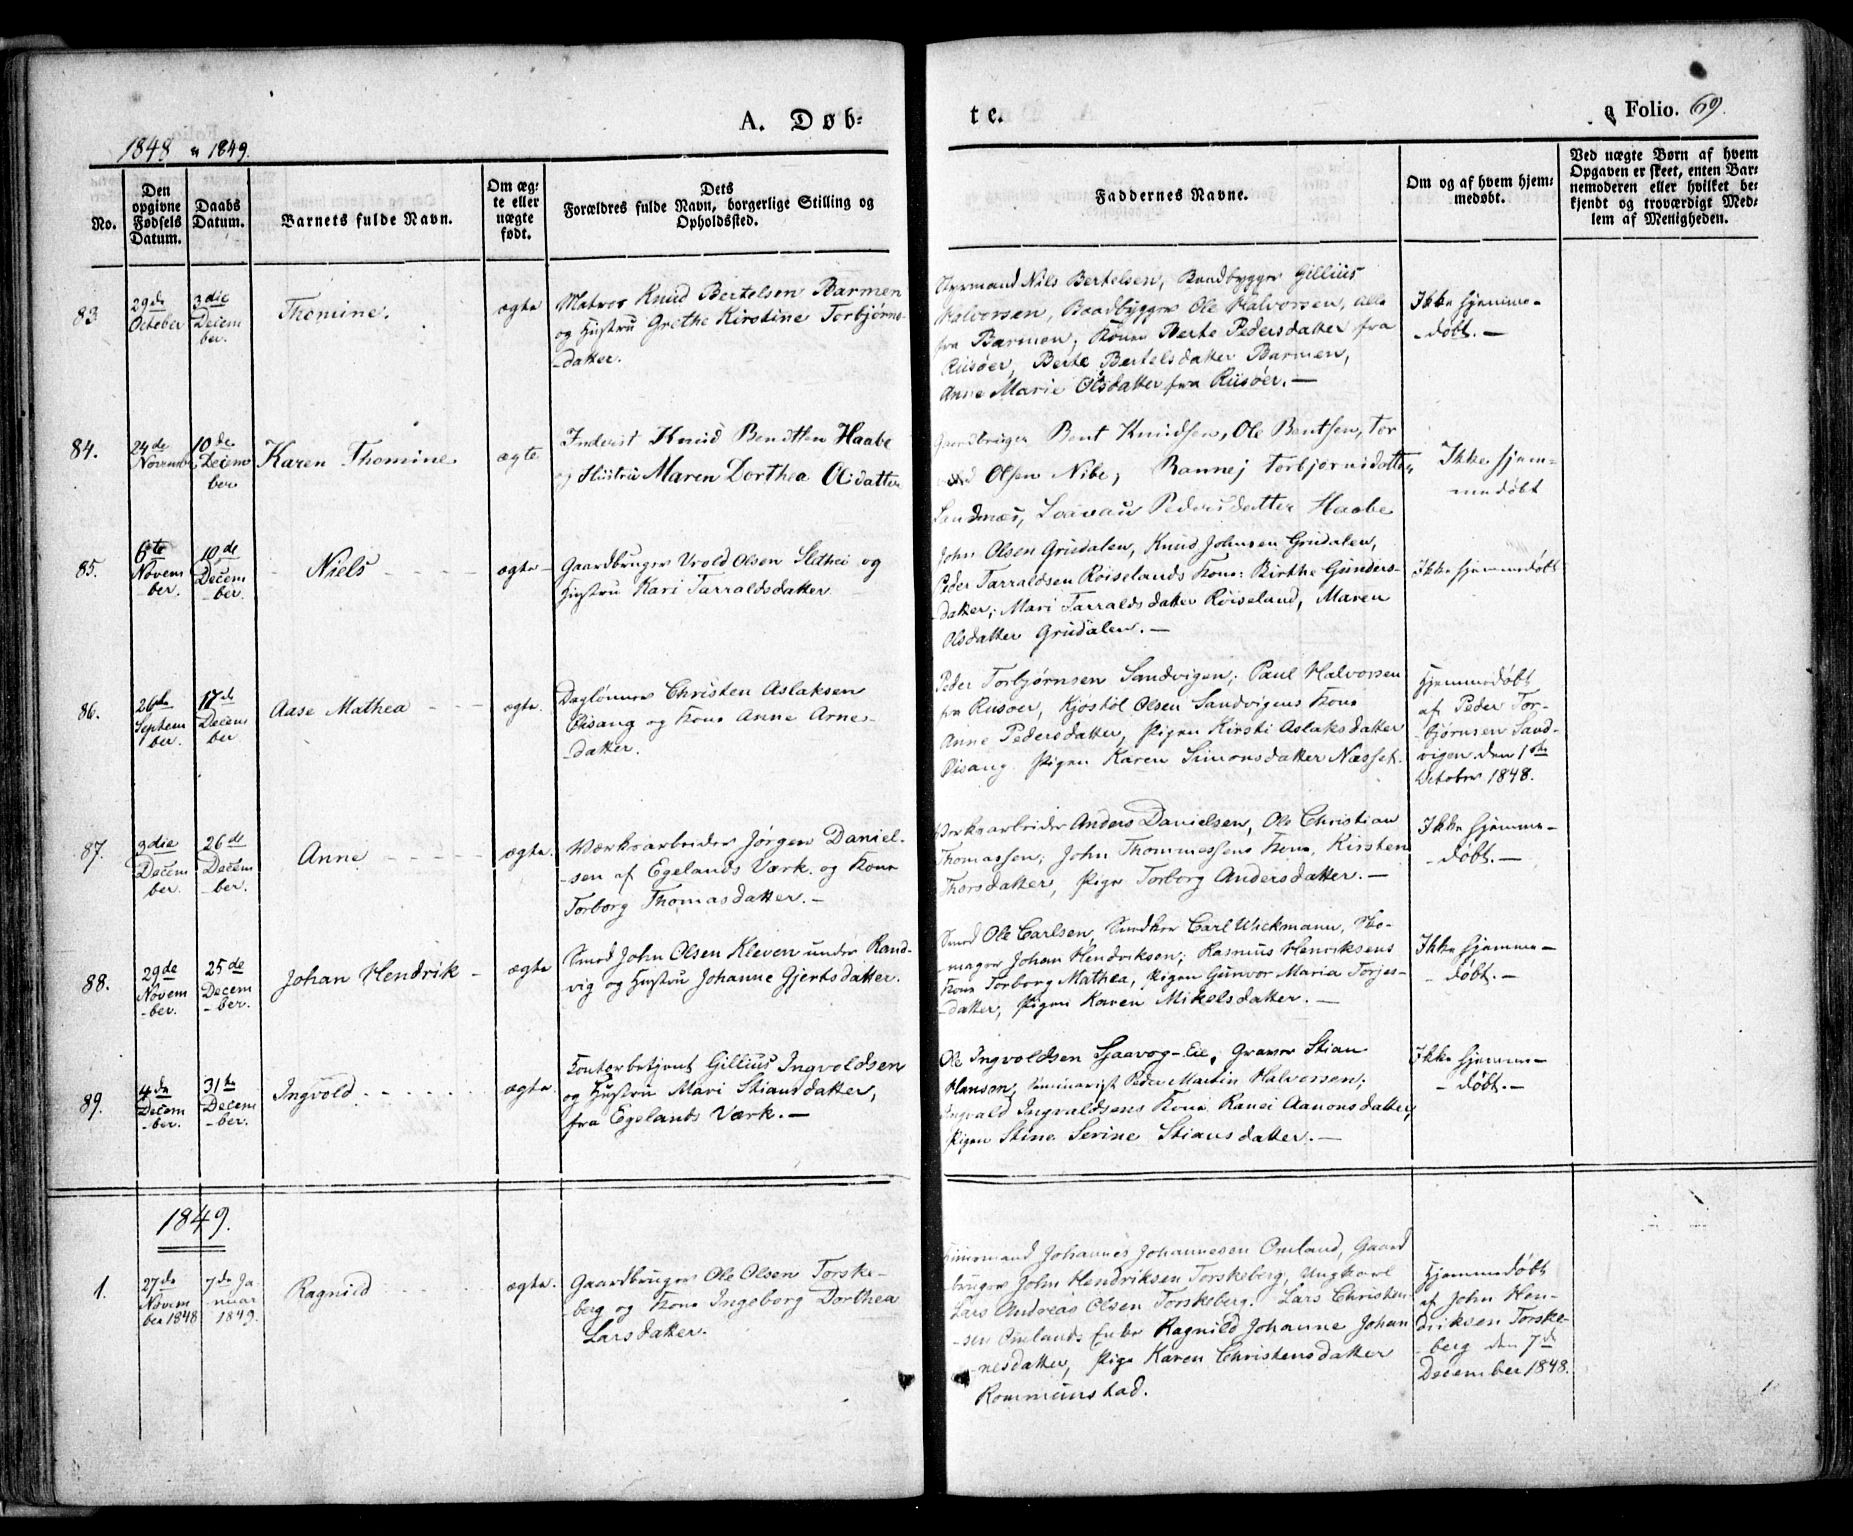 A. Døb- te.
Folio. 69.
1848 & 1849.
No.
Den opgivne Fødsels Datum.
Daabs Datum.
Barnets fulde Navn.
Om ægte eller uægte født.
Dets Forældres fulde Navn, borgerlige Stilling og Opholdssted.
Faddernes Navne.
Om og af hvem hjemmedøbt.
Ved uægte Børn af hvem
Opgaven er skeet, enten Bar-
nemoderen eller hvilket be-
kjendt og troværdigt Med-
lem af Menigheden.
83
29de October
3die Decem ber.
Thomine.
ægte
Matros Knud Bertelsen Barmen
og Hustru Grethe Kirstine Torbjørns-
-datter.
Nils Bertelsen, Baadbygger Gillius
Halvorsen, Baadbygger Ole Halvorsen, alle
fra Barmen; Konen Berte Pedersdatter fra
Riisøer, Berte Bertelsdatter Barmen,
Anne Marie Olsdatter fra Riisøer. —
Ikke hjemme-
-døbt. —
84.
24de November
10de Decem ber
Karen Thomine
ægte
Inderst Knud Bendtsen Haabe
og Hustru Maren Dorthea Olsdatter
Gaardbruger Bent Knudsen, Ole Bentsen, Tor
Olsen Nibe, Torbjørnsdatter
Sandnæs, Pedersdatter Haabe
Ikke hjem-
medøbt
85.
6te Novem ber.
10de Decem -ber.
Niels
ægte
Gaardbruger Vrold Olsen Slethei og
Hustru Kari Tarraldsdatter
John Olsen Grudalen, Knud Johnsen Grudalen,
Peder Tarraldsen Røiselands Kone: Birthe Gunders-
-datter; Mari Tarraldsdatter Røiseland, Maren
Olsdatter Grudalen. —
Ikke hjemmedøbt
86.
26de Septem ber.
17de Decem ber
Aase Mathea
ægte.
Daglønner Christen Aslaksen
Pisang og Kone Anne Arne-
-datter.
Peder Torbjørnsen Sandvigen; Paul Halvorsen
fra Riisøer, Kjøstol Olsen Sandvigens Kone
Anne Pedersdatter, Pigen Kirsti Aslaksdatter
Pisang. Pigen Karen Simonsdatter Næsset.
Hjemmedøbt
af Peder Tor-
-bjørnsen Sand-
vigen den 1ste
October 1848.
87.
3die Decem ber.
26de Decem -ber.
Anne
ægte.
Værksarbeider Jørgen Daniel-
-sen af Egelands Værk. og Kone
Torborg Thomasdatter. —
Værksarbeider Anders Danielsen, Ole Christian
Thomassen; John Thommessens Kone, Kirsten
Thorsdatter, Pige Torborg Andersdatter. —
Ikke hjemme-
-døbt. —
88.
29de Novem -ber.
25de Decem -ber.
Johan Hendrik
ægte
Smed John Olsen Kleven under Rand-
vig og Hustru Johanne Gjertsdatter.
Smed Ole Carlsen, Snedker Carl Wickmann, Sko-
-mager Johan Hendriksen; Rasmus Henriksens
Kone Torborg Mathea, Pigen Gunvor Maria Torjes-
-datter, Pigen Karen Mikelsdatter. —
Ikke hjemme-
-døbt. —
89.
4de Decem -ber.
31te Decem -ber.
Ingvold
ægte.
Contorbetjent Gillius Ingvoldsen
og Hustru Mari Stiansdatter,
fra Egelands Værk. —
Ole Ingvoldsen Sjaavog-Eie, Graver Stian
Hansen; Seminarist Peder Martin Halvorsen;
Ingvald Ingvaldsens Kone Ranei Aanonsdatter,
Pigen Stine Serine Stiansdatter. —
Ikke hjemme-
-døbt. —
1849.
1.
27de Novem ber 1848
7de Ja- nuar 1849.
Ragnild
ægte.
Gaardbruger Ole Olsen Torske-
berg og Kone Ingeborg Dorthea
Larsdatter.
Johannes Johannesen Omland, Gaard
bruger John Hendriksen Torskeberg, Ungkarl
Lars Andreas Olsen Torskeberg. Lars Christen-
-sen Omlands Enke Ragnild Johanne Johan
-nesdatter, Pige Karen Christensdatter
Rommunstad.
Hjemmedøbt
af John Hen-
driksen Torske-
-berg den 7de
December 1848.